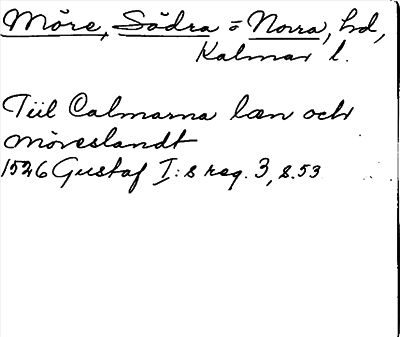 Möre, Södra o Norra, hd,
Kalmar l.
Tiil Calmarna læn och
möreslandt
1526 Gustaf I:s reg. 3, s.53